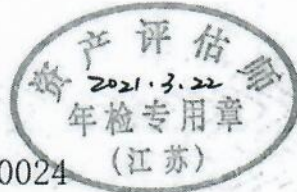 资产评估师
2021.3.22
年检专用章
(江苏)
0024